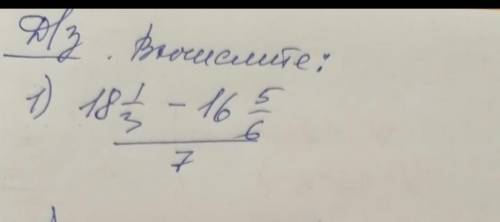 Д/з. Вычислите:
1) 18 1/3 - 16 5/6
7